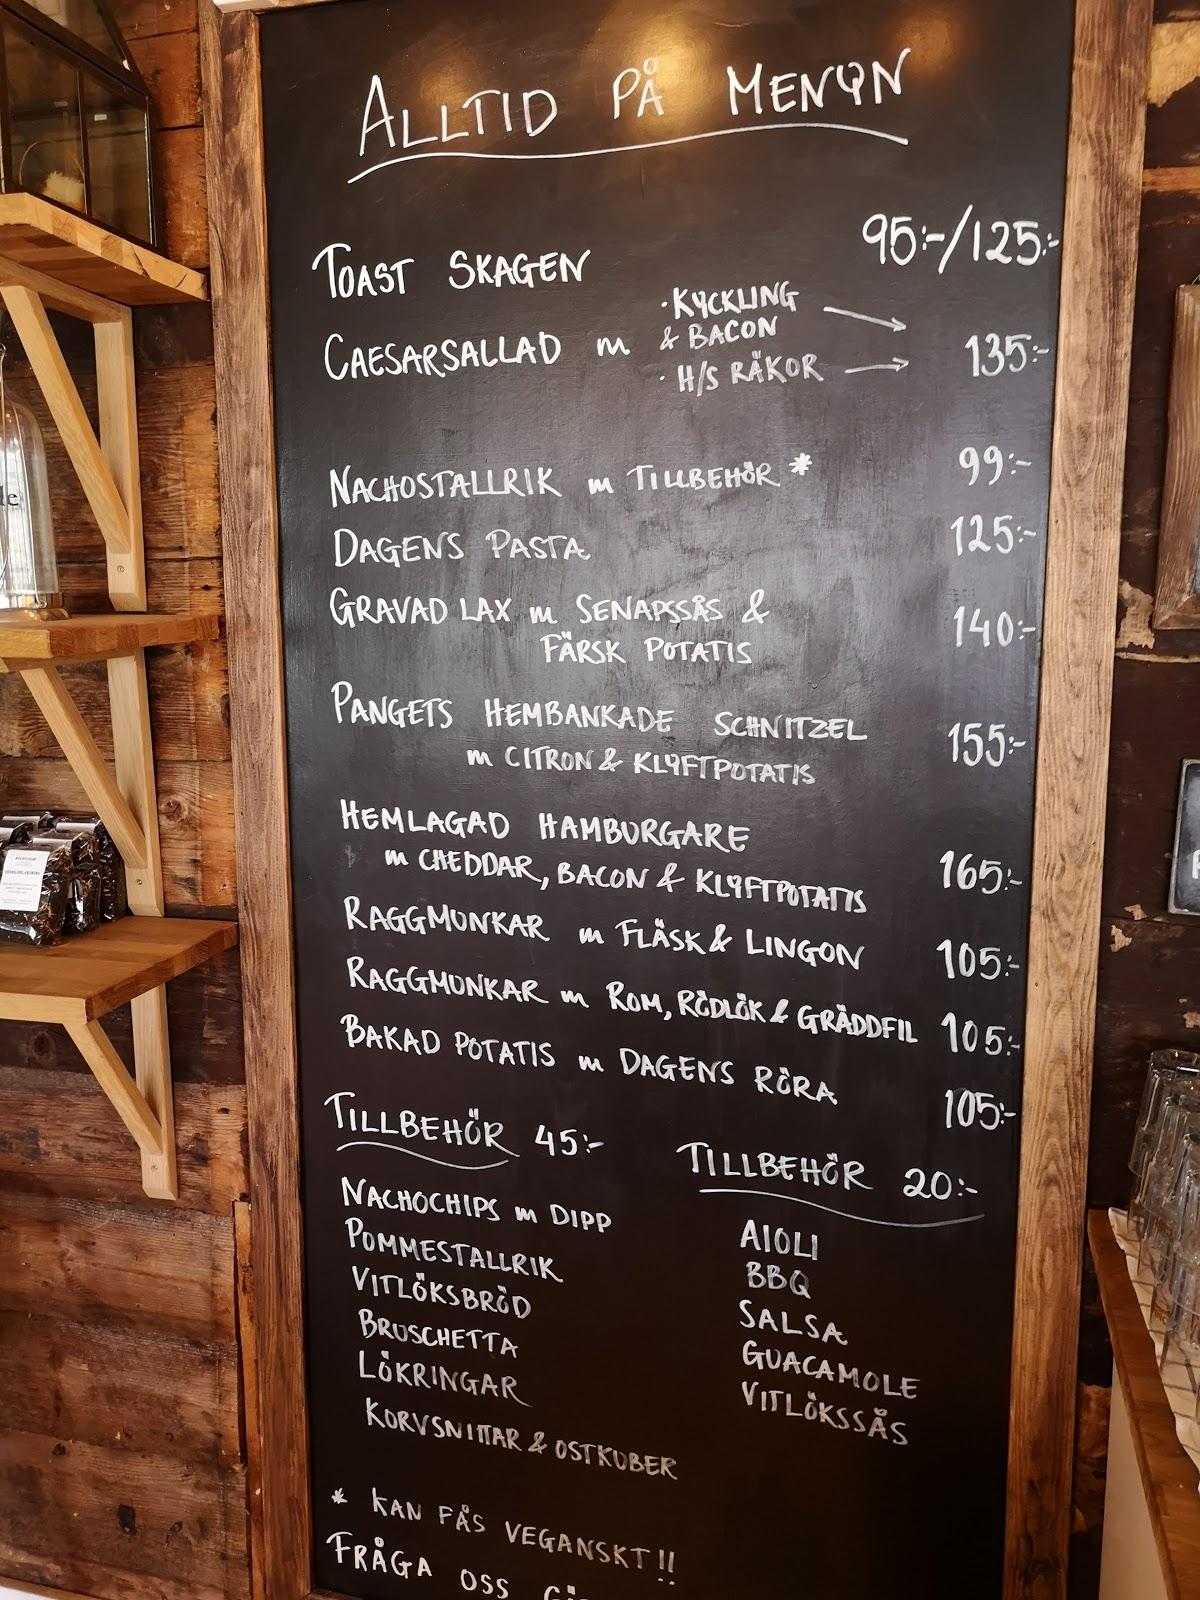 ALLTID PÅ MENYN
TOAST SKAGEN 95:-/125:-
CAESARSALLAD m · KYCKLING
& BACON
· H/S RÄKOR 135:-
NACHOSTALLRIK m TILLBEHÖR * 99:-
DAGENS PASTA 125:-
GRAVAD LAX m SENAPSSÅS &
FÄRSK POTATIS 140:-
PANGETS HEMBANKADE SCHNITZEL
m CITRON & KLYFTPOTATIS 155:-
HEMLAGAD HAMBURGARE
m CHEDDAR, BACON & KLYFTPOTATIS 165:-
RAGGMUNKAR m FLÄSK & LINGON 105:-
RAGGMUNKAR m ROM, RÖDLÖK & GRÄDDFIL 105:-
BAKAD POTATIS m DAGENS RÖRA 105:-
TILLBEHÖR 45:-
NACHOCHIPS m DIPP
POMMESTALLRIK
VITLÖKSBRÖD
BRUSCHETTA
LÖKRINGAR
KORVSNITTAR & OSTKUBER
TILLBEHÖR 20:-
AIOLI
BBQ
SALSA
GUACAMOLE
VITLÖKSSÅS
* KAN FÅS VEGANSKT!!
FRÅGA OSS